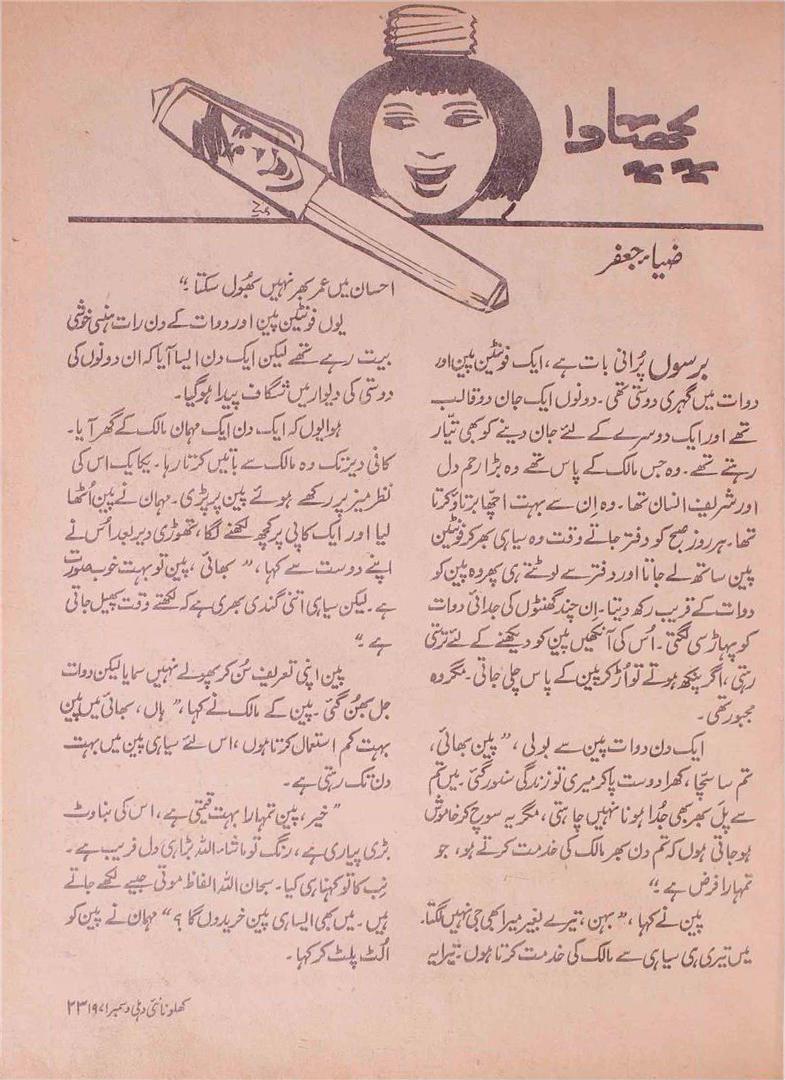 پچھتاوا
ضیاء جعفر
برسوں پرانی بات ہے، ایک فونٹین پین اور
دوات میں گہری دوستی تھی۔ دونوں ایک جان دو قالب
تھے اور ایک دوسرے کے لئے جان دینے کو بھی تیّار
رہتے تھے۔ وہ جس مالک کے پاس تھے وہ بڑا رحم دل
اور شریف انسان تھا۔ وہ اِن سے بہت اچھّا برتاؤ کرتا
تھا۔ ہر روز صبح کو دفتر جاتے وقت وہ سیاہی بھر کر فونٹین
پین ساتھ لے جاتا اور دفتر سے لوٹتے ہی پھر وہ پین کو
دوات کے قریب رکھ دیتا۔ اِن چند گھنٹوں کی جدائی دوات
کو پہاڑ سی لگتی۔ اُس کی آنکھیں پین کو دیکھنے کے لئے ترستی
رہتی، اگر پنکھ ہوتے تو اُڑ کر پین کے پاس چلی جاتی۔ مگر وہ
مجبور تھی۔
ایک دن دوات پین سے بولی، ”پین بھائی،
تم سا سچّا، کھرا دوست پا کر میری تو زندگی سنور گئی۔ میں تم
سے پل بھر بھی جُدا ہونا نہیں چاہتی، مگر یہ سوچ کر خاموش
ہو جاتی ہوں کہ تم دن بھر مالک کی خدمت کرتے ہو، جو
تمہارا فرض ہے۔“
پین نے کہا، ”بہن، تیرے بغیر میرا بھی جی نہیں لگتا۔
میں تیری ہی سیاہی سے مالک کی خدمت کرتا ہوں۔ تیرا یہ
احسان میں عمر بھر نہیں بھُول سکتا۔“
یوں فونٹین پین اور دوات کے دن رات ہنسی خوشی
بیت رہے تھے لیکن ایک دن ایسا آیا کہ ان دونوں کی
دوستی کی دیوار میں شگاف پیدا ہو گیا۔
ہوا یوں کہ ایک دن ایک مہمان مالک کے گھر آیا۔
کافی دیر تک وہ مالک سے باتیں کرتا رہا۔ یکایک اس کی
نظر میز پر رکھے ہوئے پین پر پڑی۔ مہمان نے پین اُٹھا
لیا اور ایک کاپی پر کچھ لکھنے لگا، تھوڑی دیر بعد اُس نے
اپنے دوست سے کہا، ”بھائی، پین تو بہت خوب صورت
ہے۔ لیکن سیاہی اتنی گندی بھری ہے کہ لکھتے وقت پھیل جاتی
ہے۔“
پین اپنی تعریف سُن کر پھولے نہیں سمایا لیکن دوات
جل بھُن گئی۔ پین کے مالک نے کہا، ”ہاں، بھائی میں پین
بہت کم استعمال کرتا ہوں، اس لئے سیاہی پین میں بہت
دن تک رہتی ہے۔
”خیر، پین تمہارا بہت قیمتی ہے، اس کی بناوٹ
بڑی پیاری ہے، رنگ تو ماشاء اللہ بڑا ہی دل فریب ہے۔
نِب کا تو کہنا ہی کیا۔ سبحان اللہ الفاظ موتی جیسے لکھے جاتے
ہیں۔ میں بھی ایسا ہی پین خریدوں گا؟“ مہمان نے پین کو
اُلٹ پلٹ کر کہا۔
کھلونا نئی دہلی دسمبر ۱۹۷۱ ۲۳